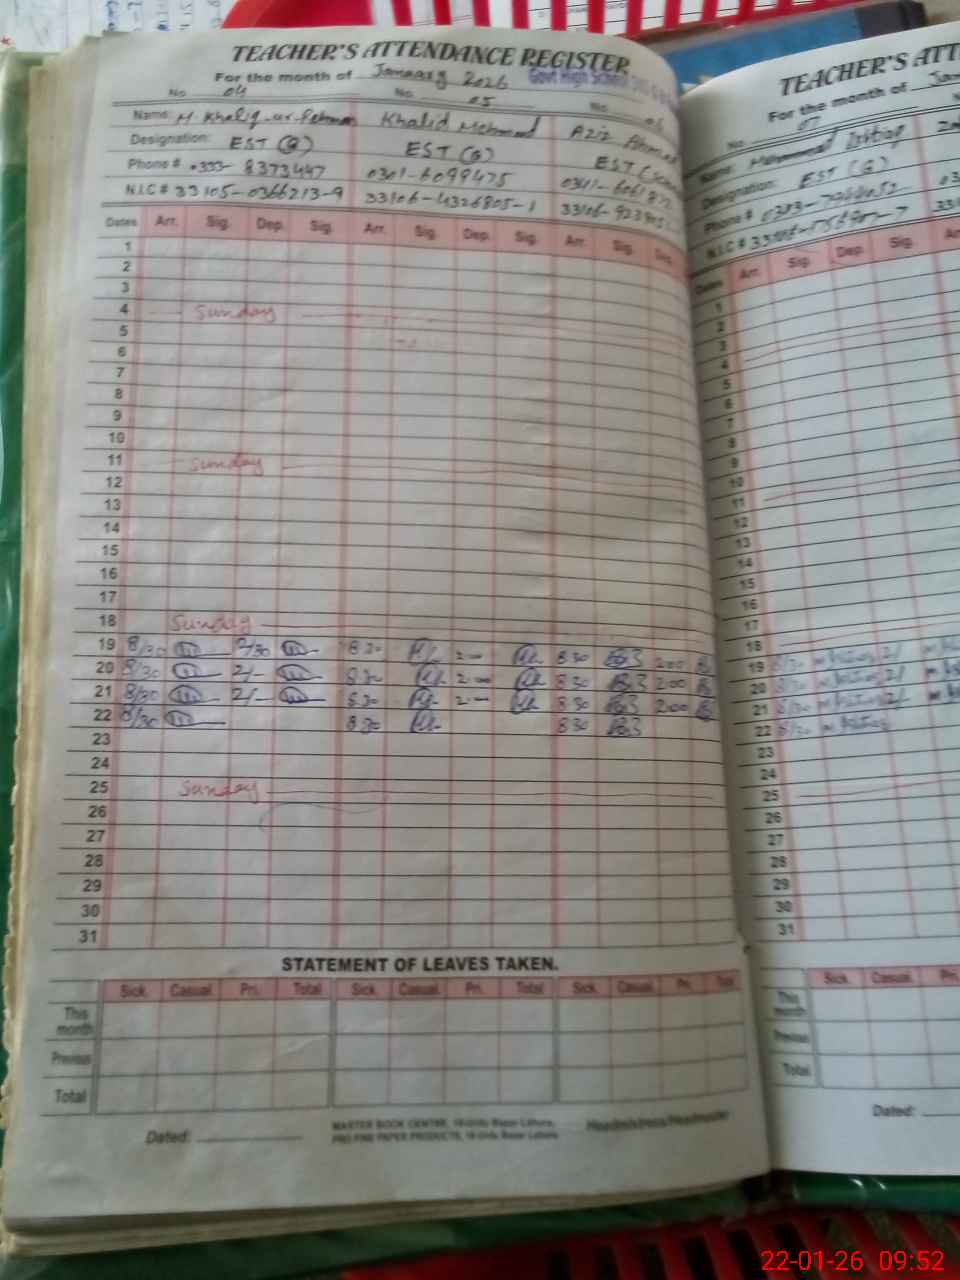 TEACHER'S ATTENDANCE REGISTER
For the month of January 2026 Govt High School
No 04 No. 05 No.
Name: M. Khaliq-ur-Rehman Khalid Mehmood Aziz Ahmad
Designation: EST (G) EST (G) EST
Phone # 0333-8373447 0301-6099475 0341-
N.I.C # 33105-0366213-9 33106-4326805-1 33106-
Dates Arr. Sig. Dep. Sig. Arr. Sig. Dep. Sig. Arr. Sig. Dep.
1
2
3
4 Sunday
5
6
7
8
9
10
11 Sunday
12
13
14
15
16
17
18 Sunday
19 8/30 2/30 8 30 2 00 8 30 2 00
20 8/30 2/- 8 30 2 00 8 30 2 00
21 8/30 2/- 8 30 2 00 8 30 2 00
22 8/30 8 30 8 30
23
24
25 Sunday
26
27
28
29
30
31
STATEMENT OF LEAVES TAKEN.
Sick. Casual. Pri. Total Sick. Casual. Pri. Total Sick. Casual. Pri. Total
This month
Previous
Total
Dated:
MASTER BOOK CENTRE, 18-Urdu Bazar Lahore.
PRO FINE PAPER PRODUCTS, 18-Urdu Bazar Lahore
Headmistress/Headmaster
TEACHER'S ATT
For the month of Jan
No. 07
Name: Muhammad
Designation: EST (G)
Phone # 0303-
N.I.C # 33106-
Dates Arr. Sig. Dep. Sig.
1
2
3
4
5
6
7
8
9
10
11
12
13
14
15
16
17
18
19 8/30 2/
20 8/30 2/
21 8/30 2/
22 8/30
23
24
25
26
27
28
29
30
31
Sick. Casual. Pri.
This month
Previous
Total
Dated:
22-01-26 09:52